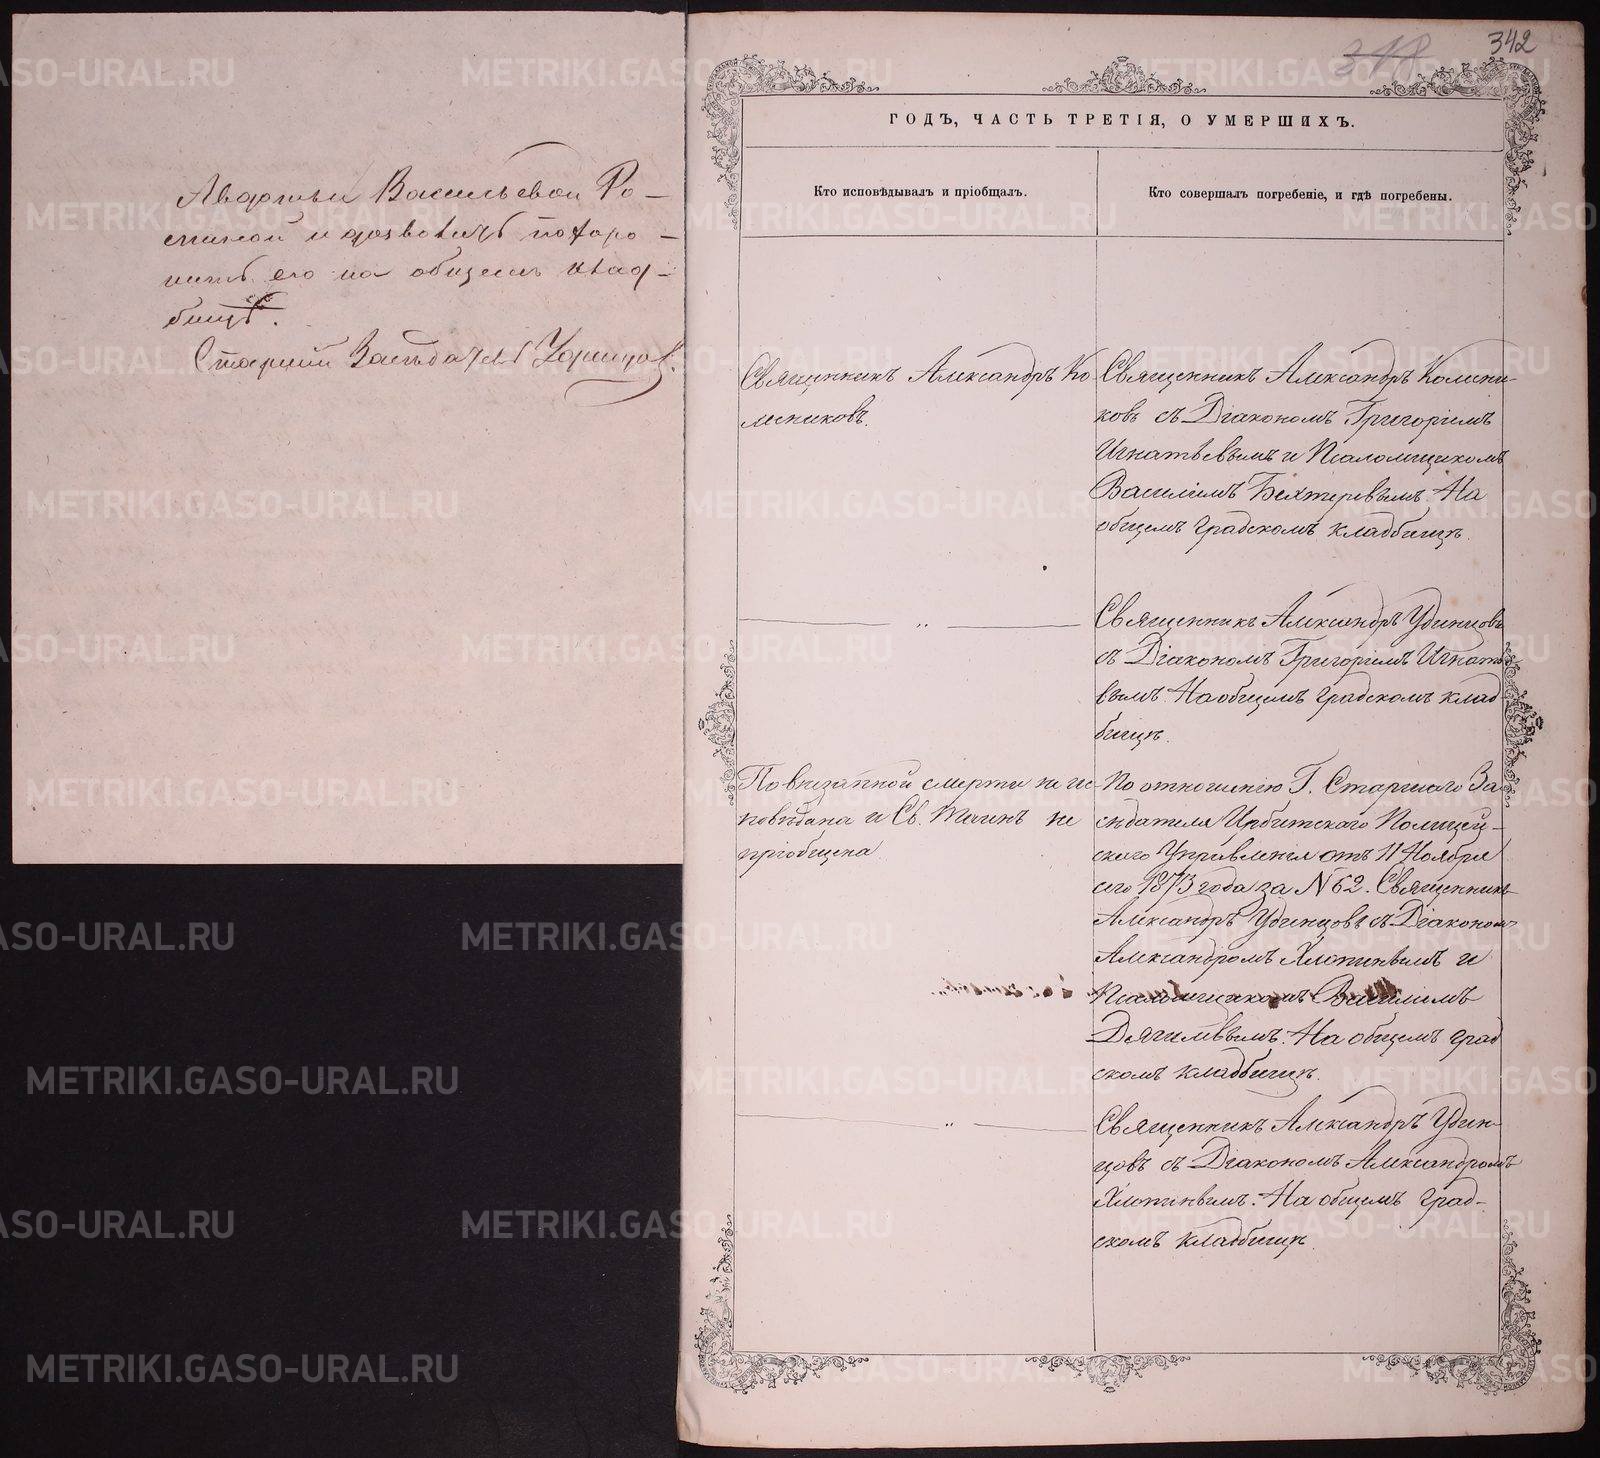 Авдотьи Васильевой Ро-
спиной и дозволить похоро-
нить его на общемъ клад-
бищѣ.
Старшій Засѣдатель
318
342
ГОДЪ, ЧАСТЬ ТРЕТІЯ, О УМЕРШИХЪ.
Кто исповѣдывалъ и пріобщалъ.
Кто совершалъ погребеніе, и гдѣ погребены.
Священникъ Александръ Ко
лесниковъ.
Священникъ Александръ Колесни-
ковъ съ Діакономъ Григоріемъ
Игнатьевымъ и Псаломщикомъ
Василіемъ Бехтеревымъ. На
общемъ градскомъ кладбищѣ.
„
Священникъ Александръ Удинцовъ
съ Діакономъ Григоріемъ Игнать
вымъ. На общемъ градскомъ клад
бищѣ.
По внезапной смерти не ис
повѣдана и Св. Таинъ не
пріобщена
По отношенію Г. Старшаго За
сѣдателя Ирбитскаго Полицей-
скаго Управленія отъ 11 Ноября
сего 1873 года за № 62. Священникъ
Александръ Удинцовъ съ Діаконом
Александромъ Хлопинымъ и
Псаломщикомъ Василіемъ
Дягилевымъ. На общемъ град
скомъ кладбищѣ.
„
Священникъ Александръ Удин-
цовъ съ Діакономъ Александромъ
Хлопинымъ. На общемъ град-
скомъ кладбищѣ.
METRIKI.GASO-URAL.RU